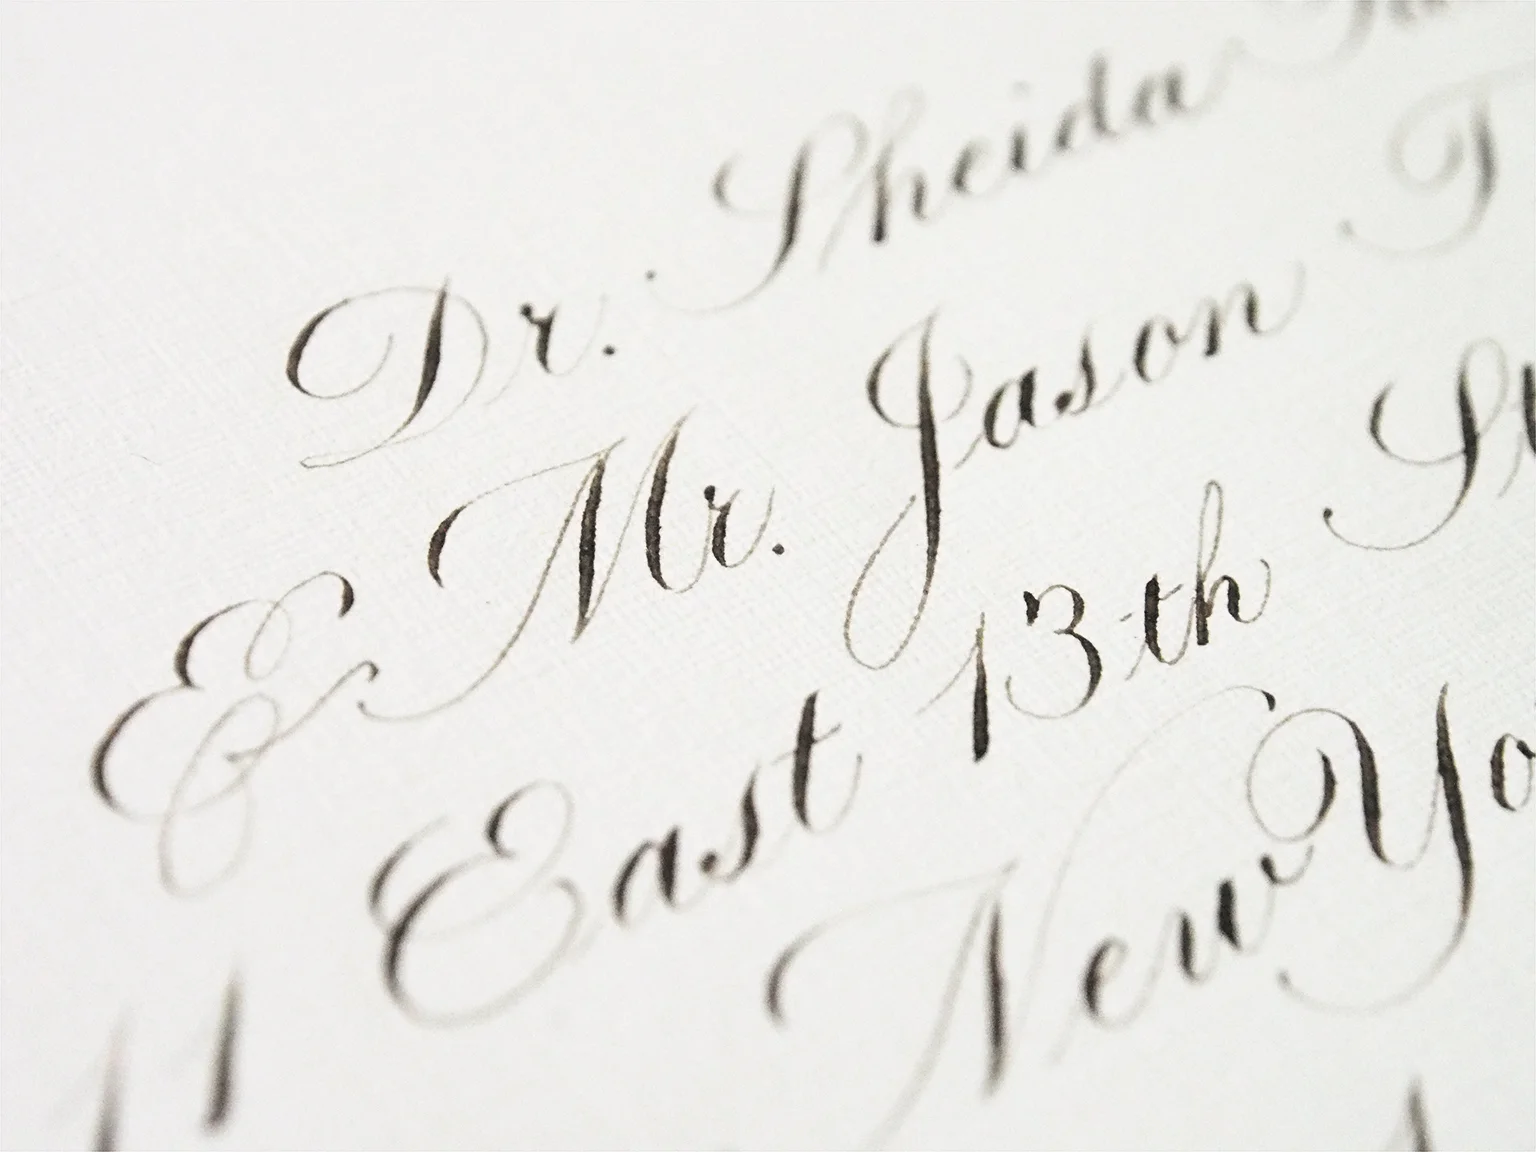 Dr. Sheida
& Mr. Jason T
11 East 13th St
New Yo